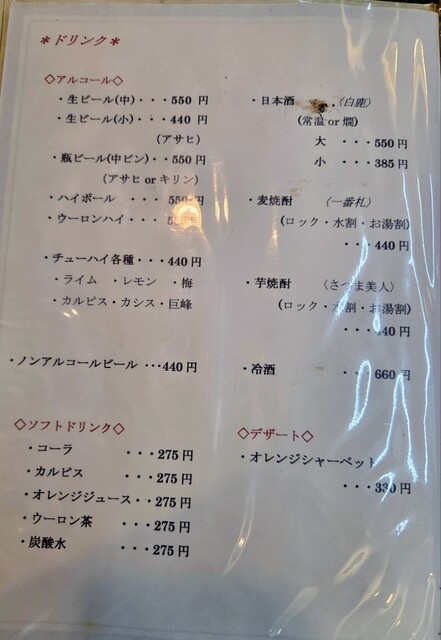 ＊ドリンク＊
◇アルコール◇
・生ビール(中)・・・550 円
・生ビール(小)・・・440 円
(アサヒ)
・瓶ビール(中ビン)・・550 円
(アサヒ or キリン)
・ハイボール ・・・550 円
・ウーロンハイ・・・
・チューハイ各種・・・440 円
・ライム ・レモン ・梅
・カルピス・カシス・巨峰
・ノンアルコールビール ・・・440 円
◇ソフトドリンク◇
・コーラ ・・・275 円
・カルピス ・・・275 円
・オレンジジュース・・275 円
・ウーロン茶 ・・・275 円
・炭酸水 ・・・275 円
・日本酒 〈白鹿〉
(常温 or 燗)
大 ・・・550 円
小 ・・・385 円
・麦焼酎 〈一番札〉
(ロック・水割・お湯割)
・・・440 円
・芋焼酎 〈さつま美人〉
(ロック・水割・お湯割)
・・・440 円
・冷酒 ・・・660 円
◇デザート◇
・オレンジシャーベット
・・・330 円